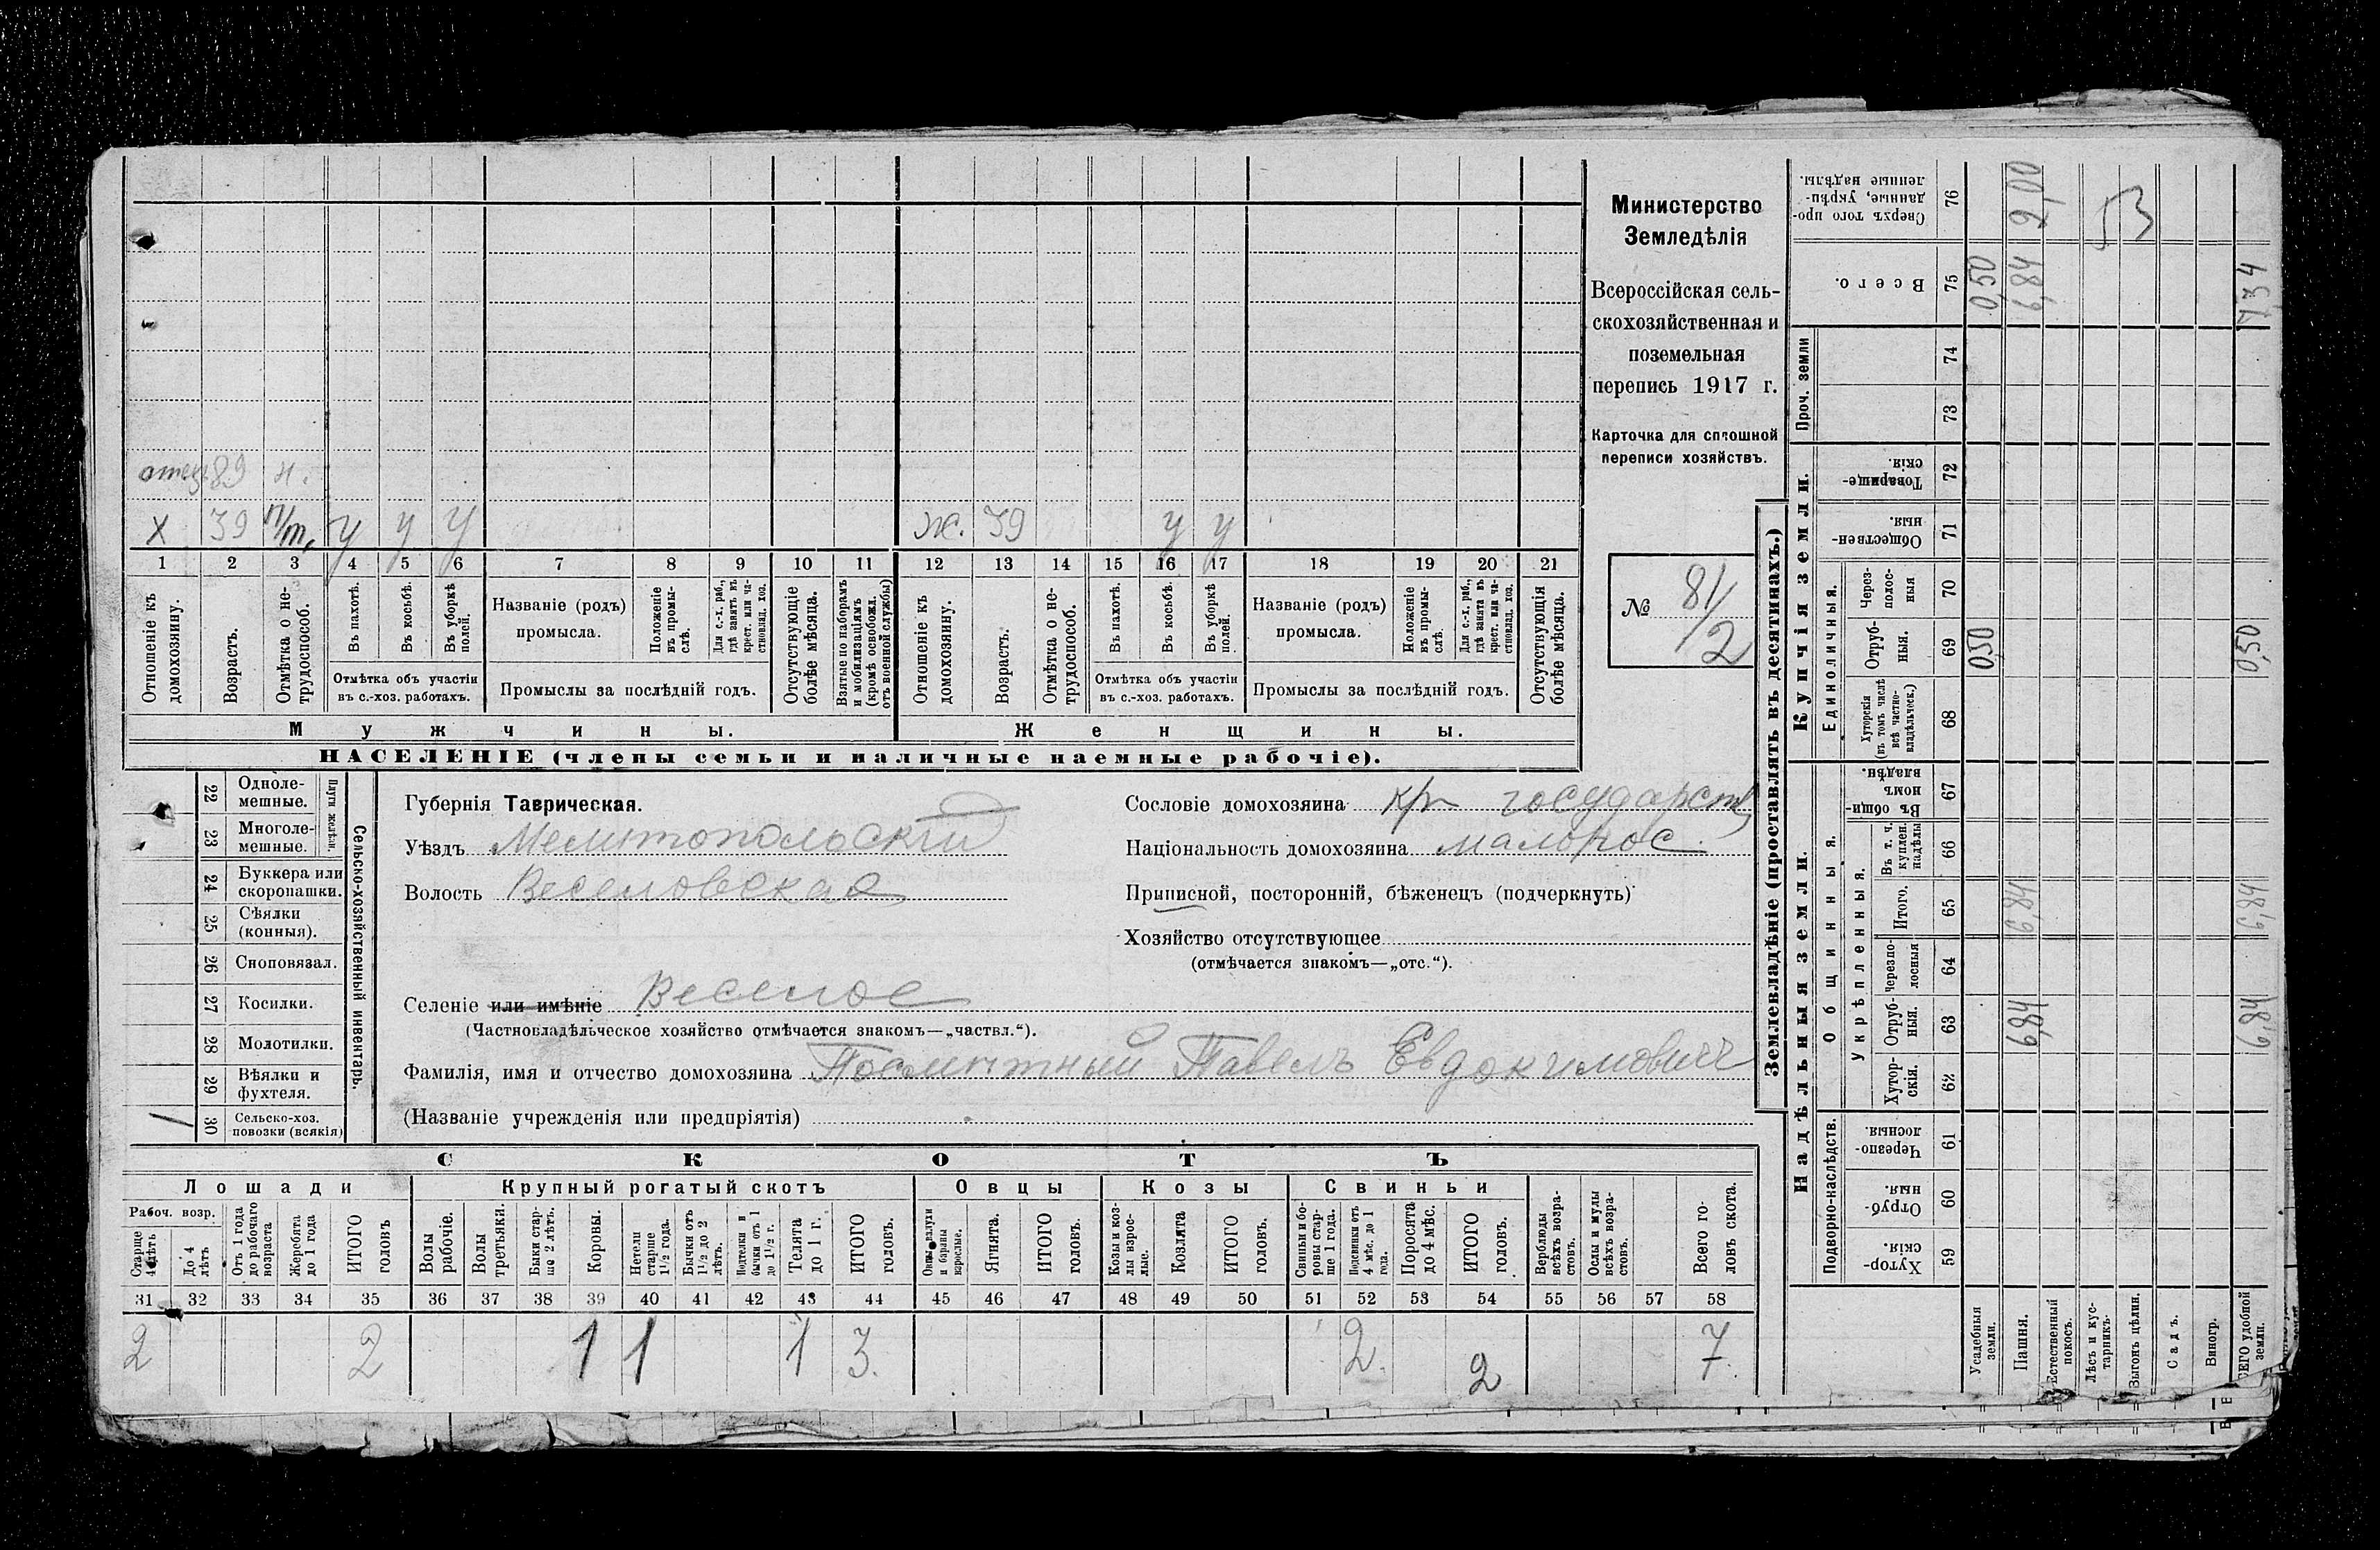 отец 89 н.
х 39 п/т, у у у ж. 39 у у
1 2 3 4 5 6 7 8 9 10 11 12 13 14 15 16 17 18 19 20 21
Отношеніе къ домохозяину.
Возрастъ.
Отмѣтка о не-
трудоспособ.
Въ пахотѣ.
Въ косьбѣ.
Въ уборкѣ полей.
Отмѣтка объ участіи
въ с.-хоз. работахъ.
Названіе (родъ)
промысла.
Положеніе
въ промы-
слѣ.
Для с.-х. раб.,
гдѣ занятъ въ
крест. или ча-
стновлад. хоз.
Промыслы за послѣдній годъ.
Отсутствующіе
болѣе мѣсяца.
Взятые по наборамъ
и мобилизаціямъ
(кромѣ освобожд.
отъ военной службы)
Отношеніе къ
домохозяину.
Возрастъ.
Отмѣтка о не-
трудоспособ.
Въ пахотѣ.
Въ косьбѣ.
Въ уборкѣ
полей.
Отмѣтка объ участіи
въ с.-хоз. работахъ.
Названіе (родъ)
промысла.
Положеніе
въ промы-
слѣ.
Для с.-х. раб.,
гдѣ занята въ
крест. или ча-
стновлад. хоз.
Промыслы за послѣдній годъ.
Отсутствующія
болѣе мѣсяца.
Мужчины. Женщины.
НАСЕЛЕНІЕ (члены семьи и наличные наемные рабочіе).
Министерство
Земледѣлія
Всероссійская сель-
скохозяйственная и
поземельная
перепись 1917 г.
Карточка для сплошной
переписи хозяйствъ.
№ 81/2
22 Одноле-
мешные.
23 Многоле-
мешные.
Плуги желѣзн.
24 Буккера или
скоропашки.
25 Сѣялки
(конныя).
26 Сноповязал.
27 Косилки.
28 Молотилки.
29 Вѣялки и
фухтеля.
1 30 Сельско-хоз.
повозки (всякія)
Сельско-хозяйственный инвентарь.
Губернія Таврическая.
Уѣздъ Мелитопольскій
Волость Веселовская
Селеніе или имѣніе Веселое
(Частновладѣльческое хозяйство отмѣчается знакомъ—„частвл.“).
Фамилія, имя и отчество домохозяина Павелъ Евдокимовичъ
(Названіе учрежденія или предпріятія)
Сословіе домохозяина кр государств
Національность домохозяина малорос.
Приписной, посторонній, бѣженецъ (подчеркнуть)
Хозяйство отсутствующее
(отмѣчается знакомъ—„отс.“).
СКОТЪ
Лошади Крупный рогатый скотъ Овцы Козы Свиньи
Рабоч. возр.
Старше
4 лѣтъ
До 4
лѣтъ
Отъ 1 года
до рабочаго
возраста
Жеребята
до 1 года
ИТОГО
головъ
Волы
рабочіе.
Волы
третьяки.
Быки стар-
ше 2 лѣтъ.
Коровы.
Нетели
старше
1½ года.
Бычки отъ
1½ до 2
лѣтъ.
Подтелки и
бычки отъ 1
до 1½ г.
Телята
до 1 г.
ИТОГО
головъ.
Овцы, валухи
и бараны
взрослые.
Ягнята.
ИТОГО
головъ.
Козы и коз-
лы взрос-
лые.
Козлята
ИТОГО
головъ.
Свиньи и бо-
ровы стар-
ше 1 года.
Подсвинки отъ
4 мѣс. до 1
года.
Поросята
до 4 мѣс.
ИТОГО
головъ.
Верблюды
всѣхъ возра-
стовъ.
Ослы и мулы
всѣхъ возра-
стовъ.
Всего го-
ловъ скота.
31 32 33 34 35 36 37 38 39 40 41 42 43 44 45 46 47 48 49 50 51 52 53 54 55 56 57 58
2 2 1 1 1 3. 2. 2 7
Землевладѣніе (проставлять въ десятинахъ.)
Надѣльныя земли. Купчія земли. Проч. земли
Подворно-наслѣдств. Общинныя. Единоличныя.
Укрѣпленныя.
Хутор-
скія.
Отруб-
ныя.
Черезпо-
лосныя.
Хутор-
скія.
Отруб-
ныя.
Черезпо-
лосныя
Итого.
Въ т. ч.
куплен.
надѣлы
Въ общин-
номъ
владѣн.
Хуторскія
(въ томъ числѣ
всѣ частно-
владѣльческ.)
Отруб-
ныя.
Через-
полос-
ныя
Обществен-
ныя.
Товарище-
скія.
Всего.
Сверхъ того про-
данные, укрѣп-
ленные надѣлы.
59 60 61 62 63 64 65 66 67 68 69 70 71 72 73 74 75 76
Усадебныя
земли. 0,50 0,50
Пашня. 6,84 6,84 6,84 2,00
Естественный
покосъ.
Лѣсъ и кус-
тарникъ.
53
Выгонъ цѣлин.
Садъ.
Виногр.
ВСЕГО удобной
земли. 6,84 6,84 0,50 7 34